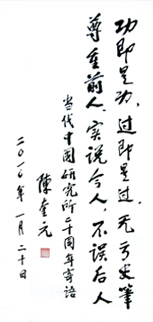 功即是功，过即是过，无亏史笔
尊重前人，实说今人，不误后人
当代中国研究所二十周年寄语
陈奎元
二〇一〇年一月二十日